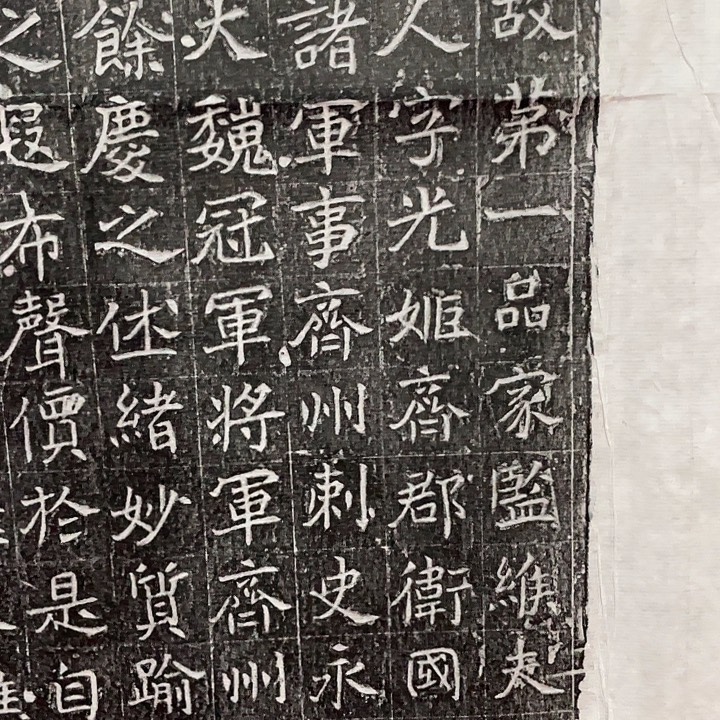 故苐一品家監維夫
人字光姬齊郡衛國
諸軍事齊州刺史永
大魏冠軍將軍齊州
餘慶之休緒妙質踰
之布聲價於是自